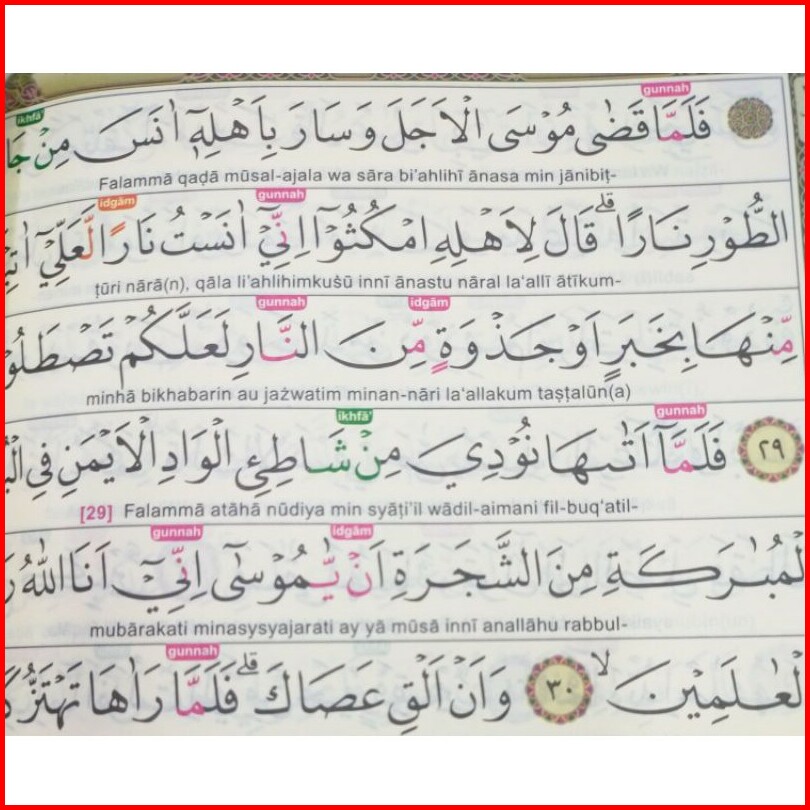 gunnah
ikhfā'
فَلَمَّا قَضٰى مُوْسَى الْاَجَلَ وَسَارَ بِاَهْلِهٖٓ اٰنَسَ مِنْ
Falammā qaḍā mūsal-ajala wa sāra bi'ahlihī ānasa min jānibiṭ-
idgām gunnah
الطُّوْرِ نَارًاۗ قَالَ لِاَهْلِهِ امْكُثُوْٓا اِنِّيْٓ اٰنَسْتُ نَارًا لَّعَلِّيْٓ
ṭūri nārā(n), qāla li'ahlihimkuṡū innī ānastu nāral la'allī ātīkum-
gunnah idgām
مِّنْهَا بِخَبَرٍ اَوْ جَذْوَةٍ مِّنَ النَّارِ لَعَلَّكُمْ
minhā bikhabarin au jażwatim minan-nāri la'allakum taṣṭalūn(a)
ikhfā' gunnah
٢٩ فَلَمَّآ اَتٰىهَا نُوْدِيَ مِنْ شَاطِئِ الْوَادِ الْاَيْمَنِ فِى
[29] Falammā atāhā nūdiya min syāṭi'il wādil-aimani fil-buq'atil-
gunnah idgām
الْمُبٰرَكَةِ مِنَ الشَّجَرَةِ اَنْ يّٰمُوْسٰٓى اِنِّيْٓ اَنَا اللّٰهُ
mubārakati minasysyajarati ay yā mūsā innī anallāhu rabbul-
gunnah
الْعٰلَمِيْنَ ۙ ٣٠ وَاَنْ اَلْقِ عَصَاكَ ۗ فَلَمَّا رَاٰهَا تَهْتَزُّ